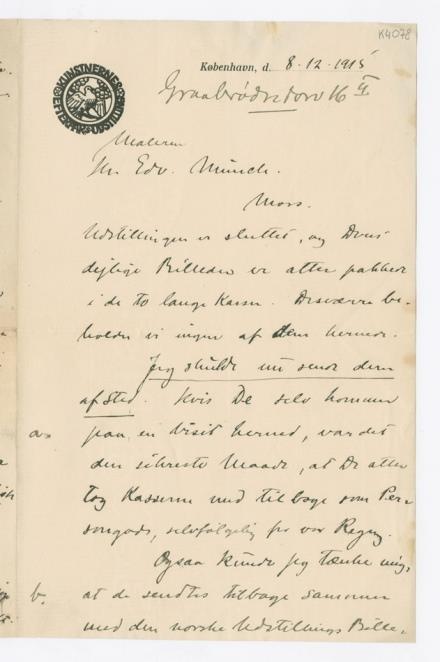 K4078
København, d. 8.12.1915
KUNSTNERNES EFTERAARSUDSTILLING
Graabrødretorv 16
Maleren
Hr. Edv. Munch.
Moss.
Udstillingen er sluttet, og Deres
dejlige Billeder er atter pakkede
i de to lange Kasser. Desværre be-
holder vi ingen af dem hernede.
Jeg skulde nu sende dem
afsted. Hvis De selv kommer
a. paa en Visit herned, var det
den sikreste Maade, at De atter
tog Kasserne med tilbage som Per-
songods, selvfølgelig for vor Regng.
Ogsaa kunde jeg tænke mig,
b. at de sendtes tilbage sammen
med den norske Udstillings Bille-